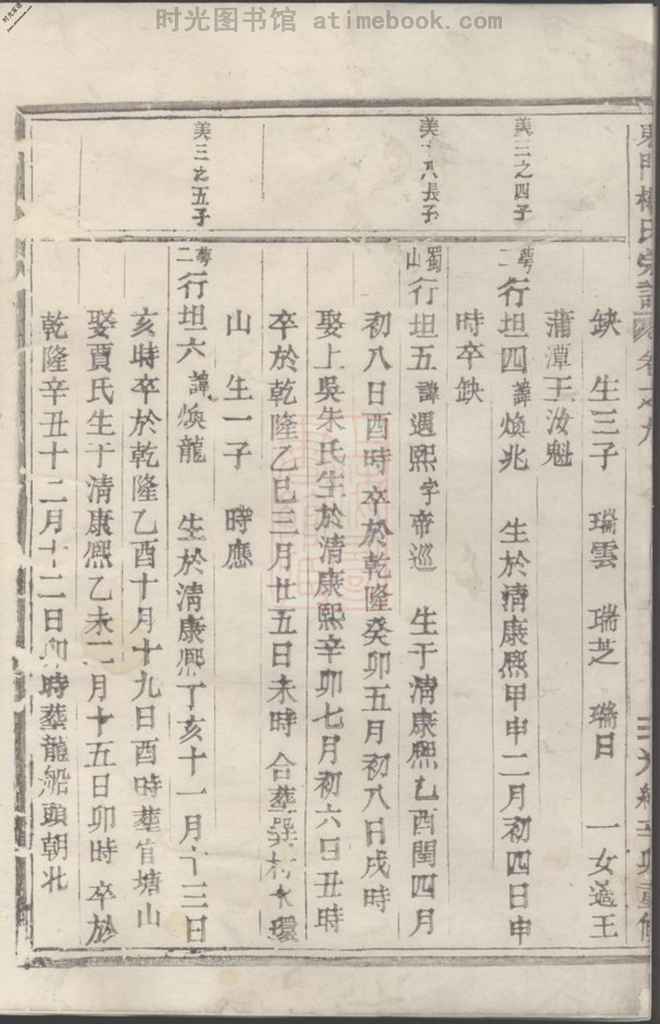 时光图书馆 atimebook.com
缺 生三子 瑞雲 瑞芝 瑞日 一女適王
蒲潭王汝魁
美三之四子
二 行坦四 諱煥兆 生於清康熙甲申二月初四日申
時卒缺
美 八長子
蜀山行坦五 諱遇熙 字帝巡 生于清康熙乙酉閏四月
初八日酉時卒於乾隆癸卯五月初八日戌時
娶上吳朱氏生於清康熙辛卯七月初六日丑時
卒於乾隆乙巳三月廿五日未時 合葬 村 環
山 生一子 時應
美三之五子
二 行坦六 諱煥龍 生於清康熙丁亥十一月十三日
亥時卒於乾隆乙酉十月十九日酉時葬官塘山
娶賈氏生于清康熙乙未二月十五日卯時 卒於
乾隆辛丑十二月十二日卯時葬龍船頭朝北